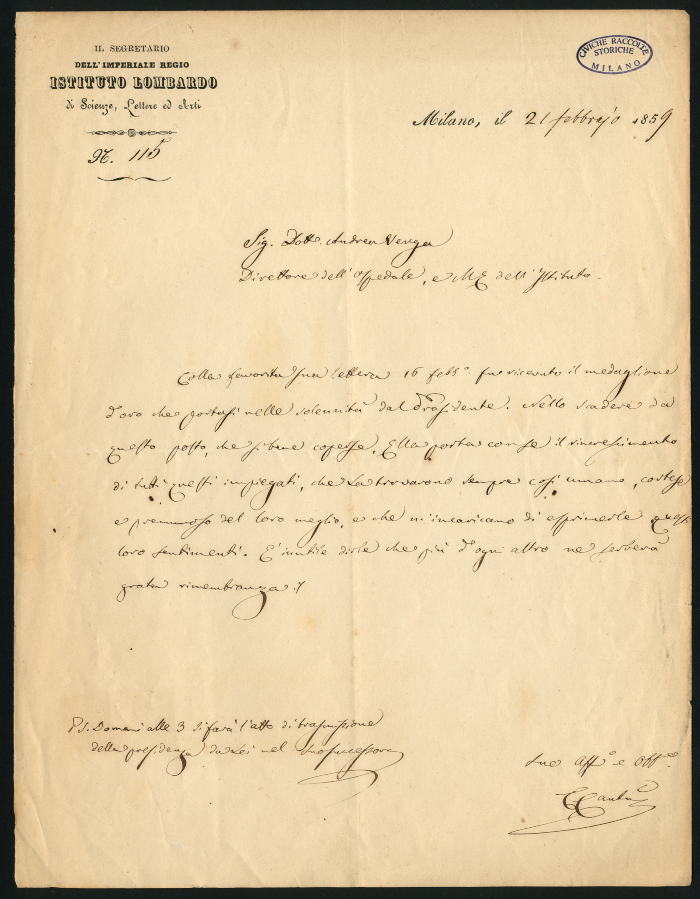 IL SEGRETARIO
DELL'IMPERIALE REGIO
ISTITUTO LOMBARDO
di Scienze, Lettere ed Arti
N. 115
CIVICHE RACCOLTE
STORICHE
MILANO
Milano, il 21 febbrajo 1859
Sig. Dott. Andrea Verga
Direttore dell'Ospedale, e ME dell'Istituto.
Colla favorita Sua lettera 16 febb.o fu ricevuto il medaglione
d'oro che portasi nelle solennità dal Presidente. Nello scadere da
questo posto, che sì bene coperse, Ella porta con se il rincrescimento
di tutti questi impiegati, che La trovarono sempre così umano, cortese
e premuroso del loro meglio, e che m'incaricano di esprimerle questi
loro sentimenti. E' inutile dirle che più d'ogni altro ne serberà
grata rimembranza il
P.S. Domani alle 3 si farà l'atto di trasmissione
della presidenza da Lei nel Suo successore
Suo Aff.o e Obb.o
C Cantù